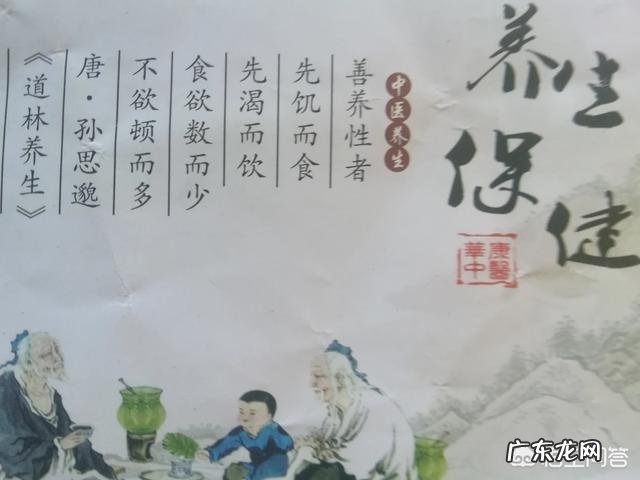 养生
保健
康醫
華中
中医养生
善养性者
先饥而食
先渴而饮
食欲数而少
不欲顿而多
唐·孙思邈
《道林养生》
广东龙网